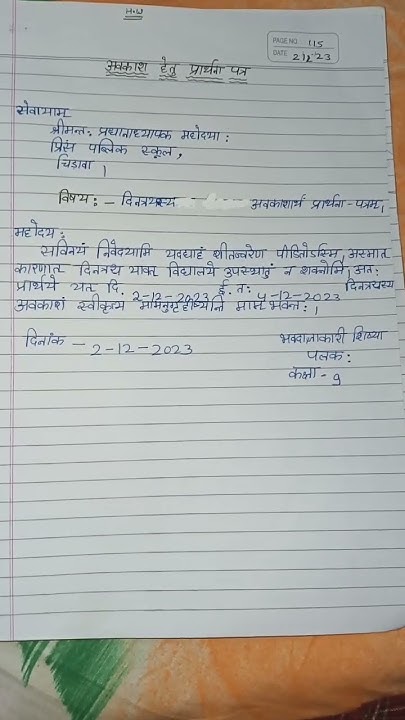 H.W
PAGE NO. 115
DATE 2/12/23
अवकाश हेतु प्रार्थना पत्र
सेवायाम
श्रीमन्त: प्रधानाध्यापक महोदया :
प्रिंस पब्लिक स्कूल,
चिड़ावा ।
विषय: - दिनत्रयस्य - - - - अवकाशार्थं प्रार्थना-पत्रम् ।
महोदय:
सविनयं निवेदयामि यदद्याहं शीतज्वरेण पीडितोऽस्मि, अस्मात
कारणात दिनत्रय यावत विद्यालये उपस्थातुं न शक्नोमि, अत:
प्रार्थये यत् दि. 2-12-2023 ई. त: 4-12-2023 दिनत्रयस्य
अवकाशं स्वीकृत्य मामनुगृहीष्यन्ति माम भवन्त: ।
दिनांक - 2-12-2023
भवदाज्ञाकारी शिष्या
पलक:
कक्षा - 9